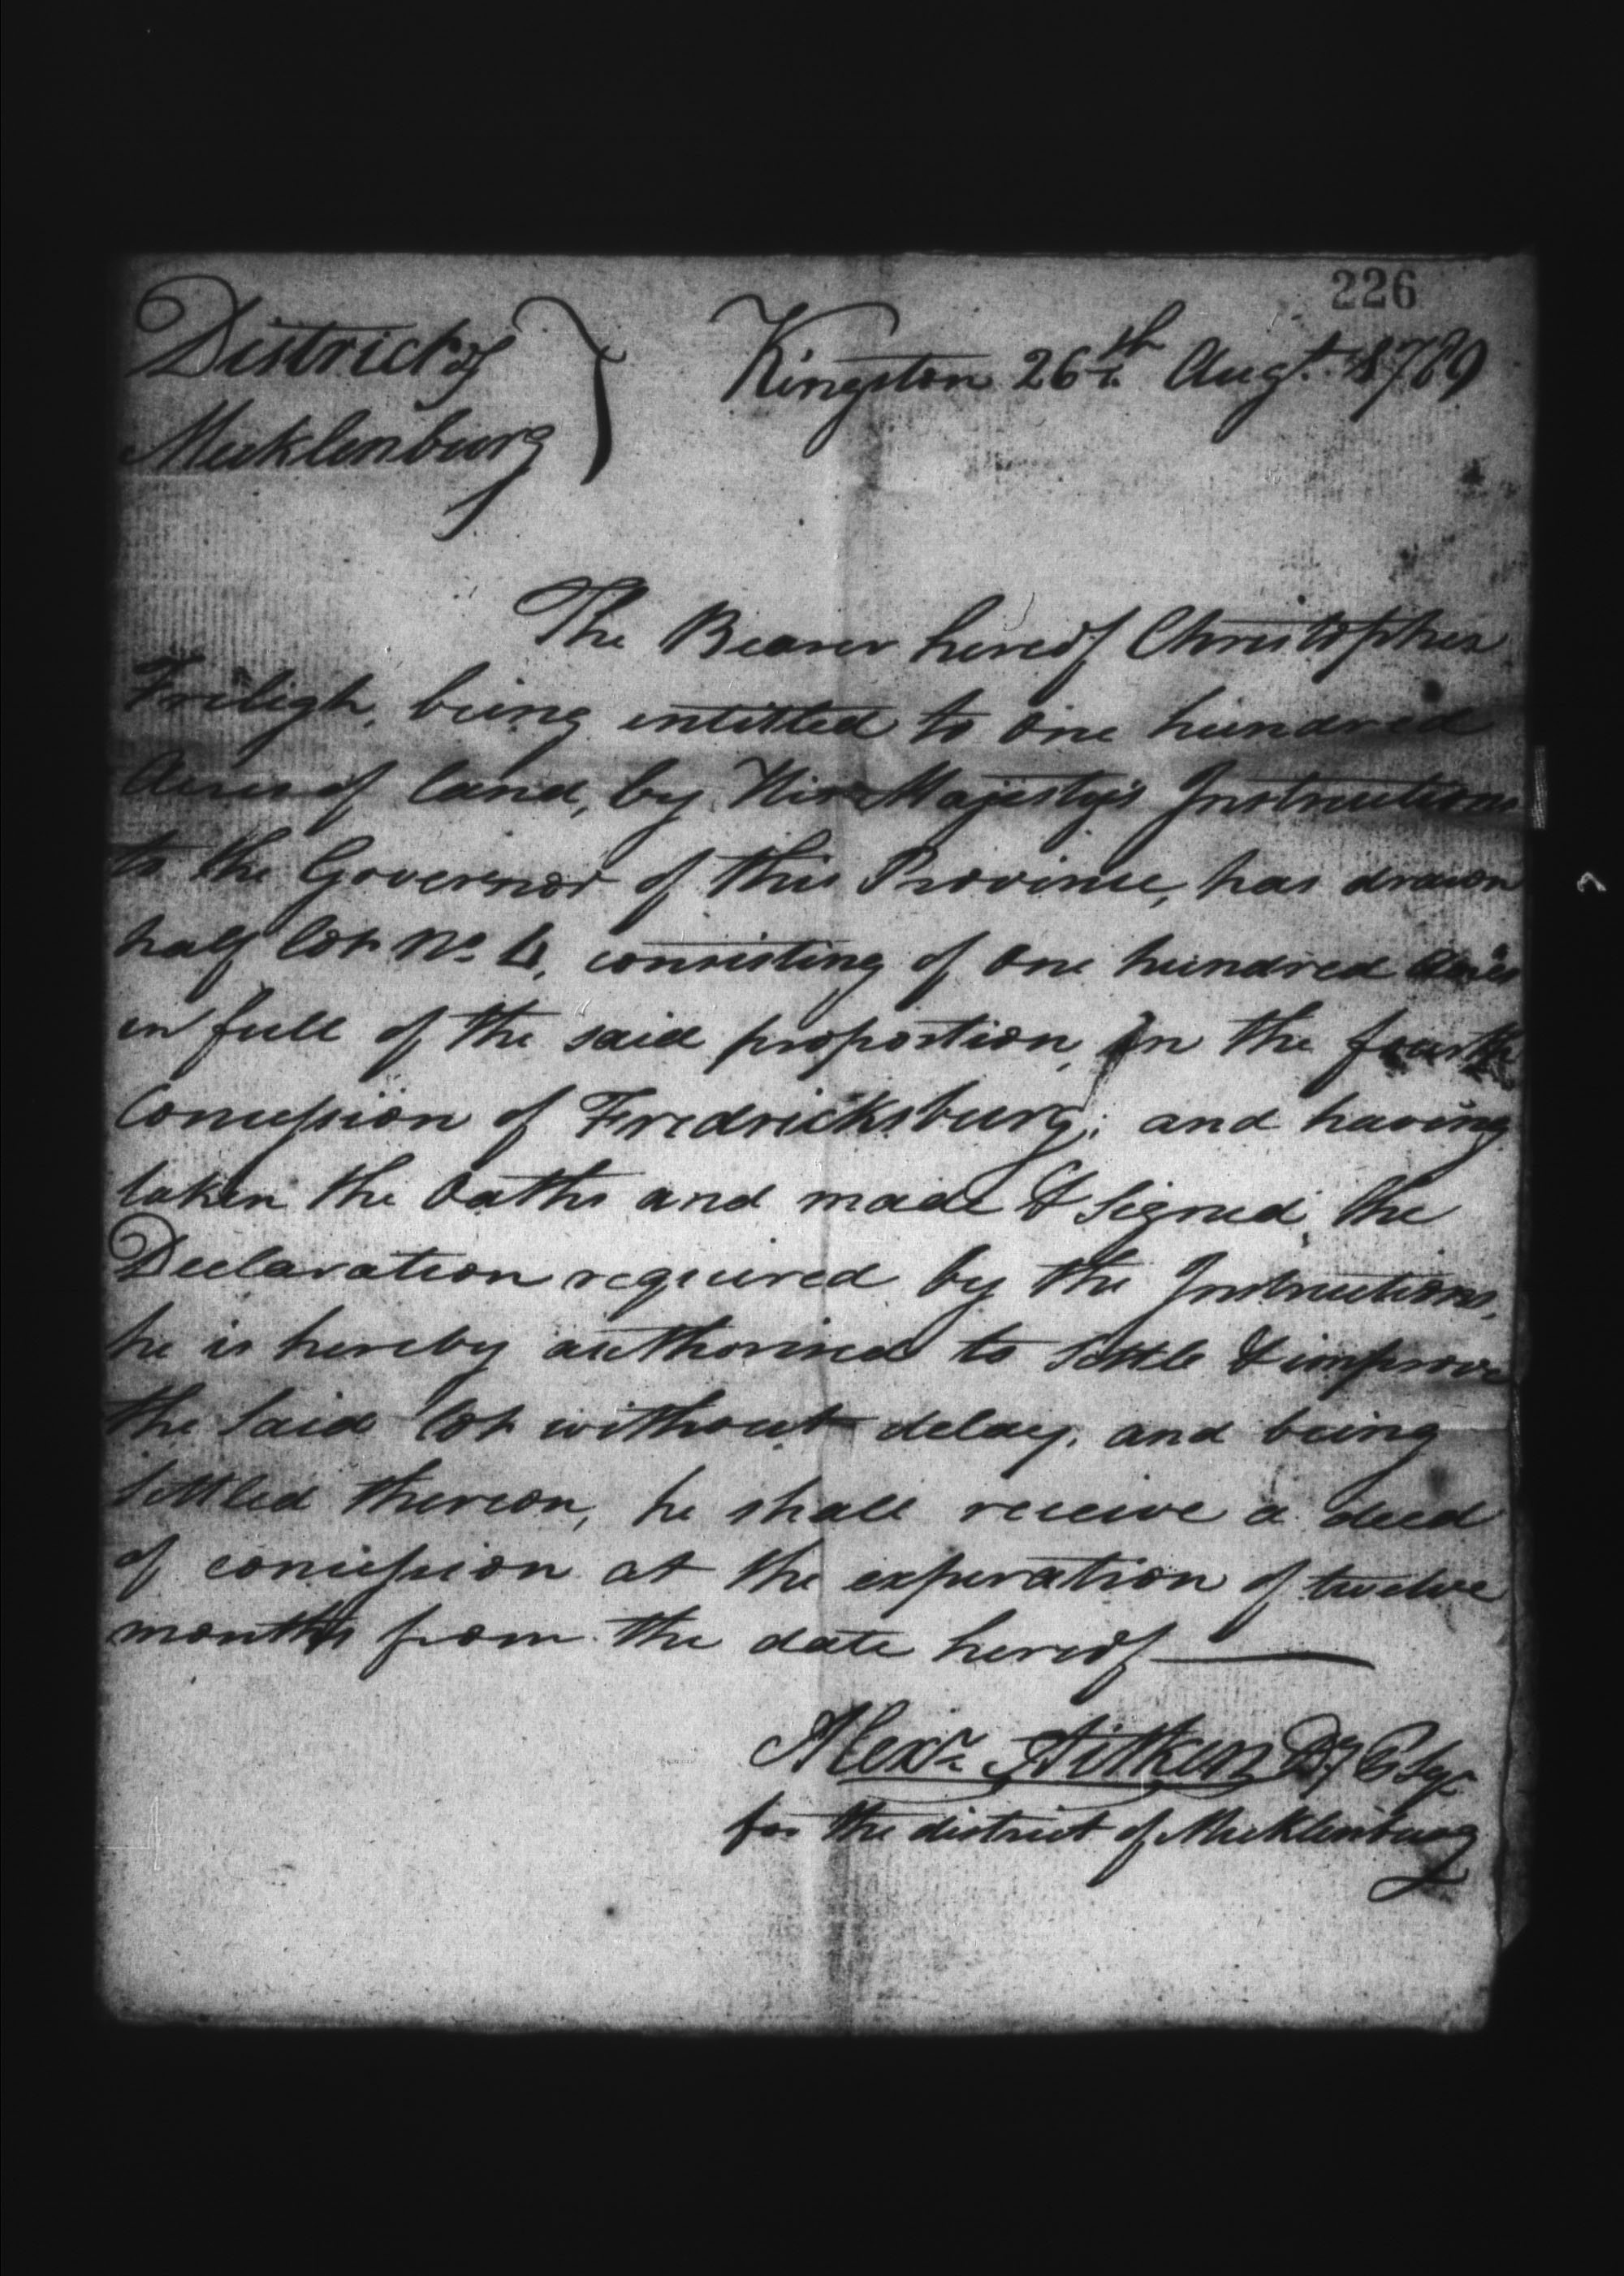 226
District of
Mecklenburg } Kingston 26th Augt. 1789
The Bearer hereof Christopher
Freligh, being entitled to one hundred
Acres of land, by His Majesty's Instructions
to the Governor of this Province, has drawn
half lot No. 4, consisting of one hundred Acres
in full of the said proportion, in the fourth
Concession of Fredricksburg; and having
taken the Oaths and made & signed, the
Declaration required by the Instructions,
he is hereby authorised to settle & improve
the said lot without delay, and being
settled thereon, he shall receive a deed
of concession at the experation of twelve
months from the date hereof
Alexr. Aitken Dy
for the district of Mecklenburg